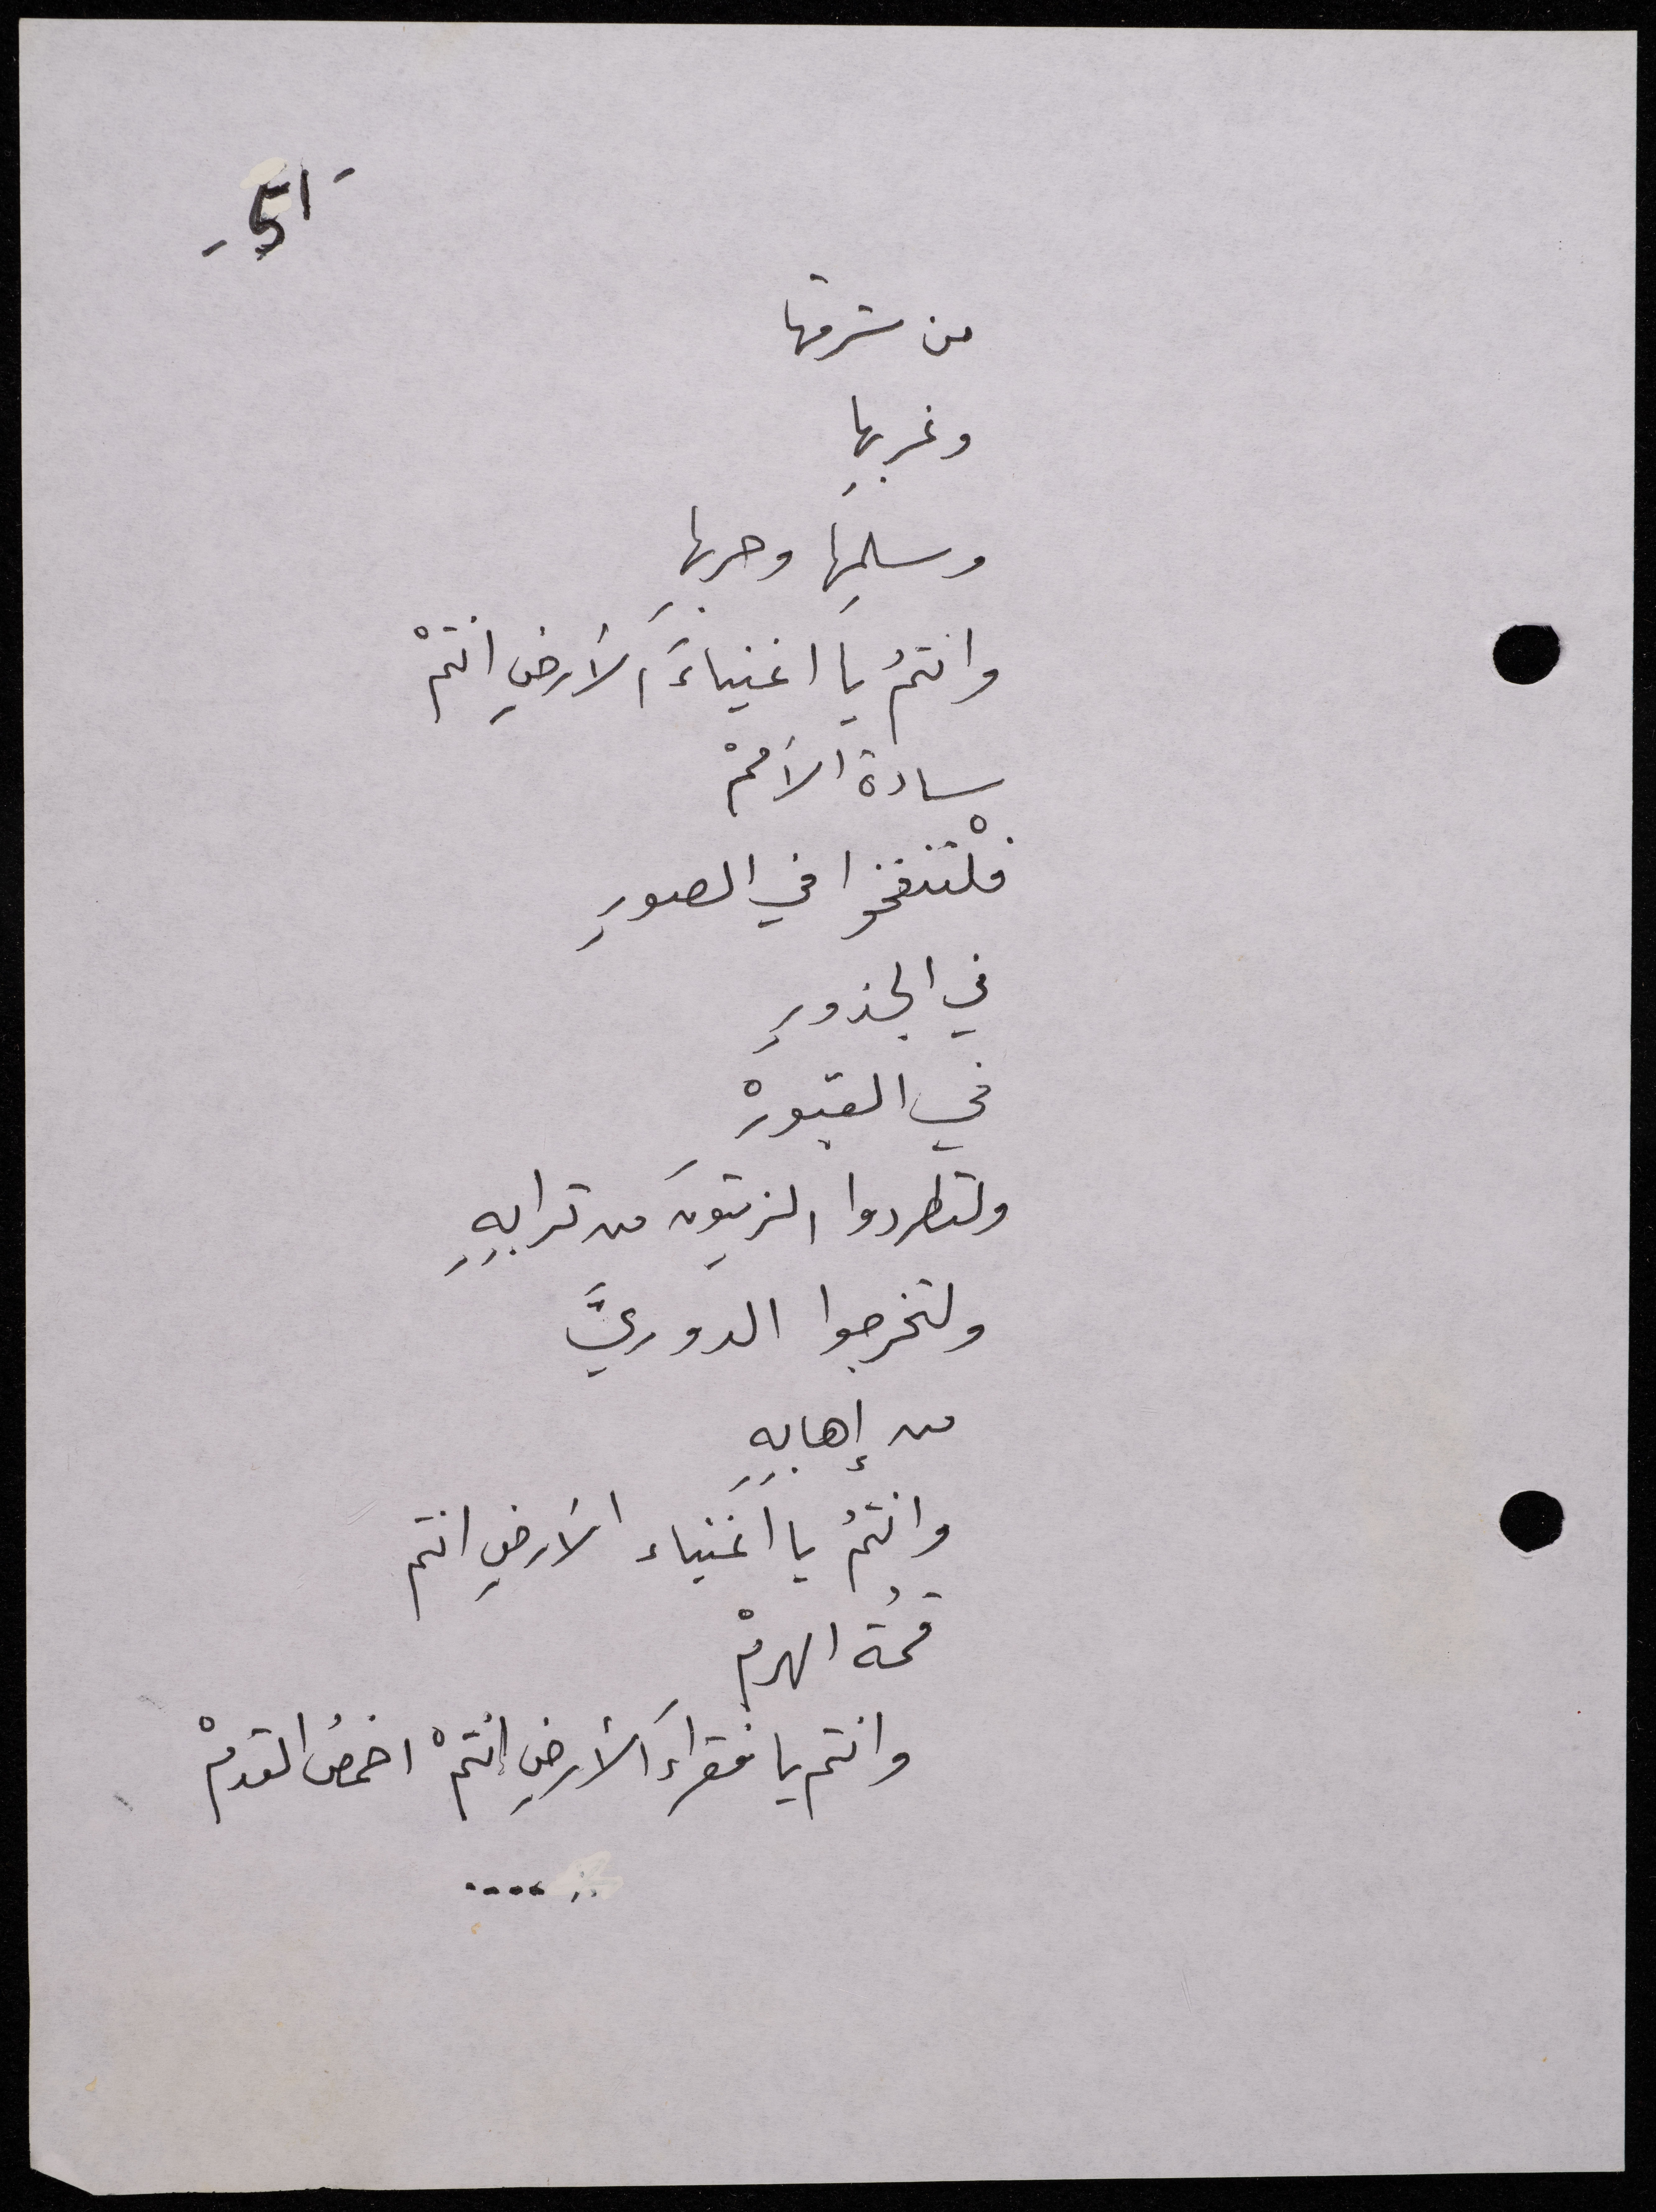 - 51 -
من شرقها
وغربِها
وسلمِها وحربِها
وانتمُ يا اغنياءَ الأرضِ انتمْ
سادة الأممْ
فلْتنفخوا في الصورِ
في الجذورِ
في القبورْ
ولتطردوا الزيتونَ من ترابِهِ
ولتخرجوا الدوريَّ
من إهابِهِ
وانتمُ يا أغنياء الأرضِ انتم
قمُة الهرمْ
وانتم يا فقراءَ الأرضِ انتمْ اخمصُ القدمْ
.....